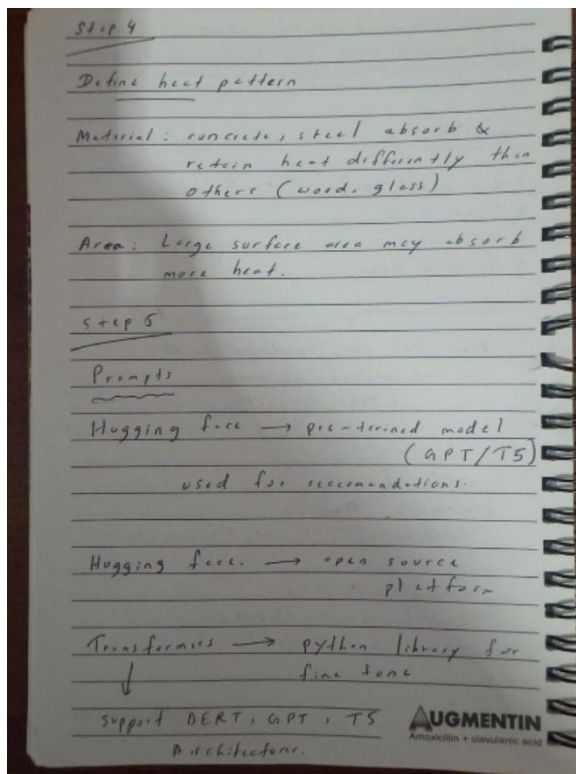 Step 4
Define heat pattern
Material : concrete, steel absorb &
retain heat differently than
others (wood, glass)
Area : Large surface area may absorb
more heat.
Step 5
Prompts
Hugging face → pre-trained model
(GPT/T5)
used for reccomandations.
Hugging face. → open source
platform
Transformers → python library for
fine tone
↓
support BERT, GPT, T5
Architecture.
AUGMENTIN
Amoxicillin + clavulanic acid